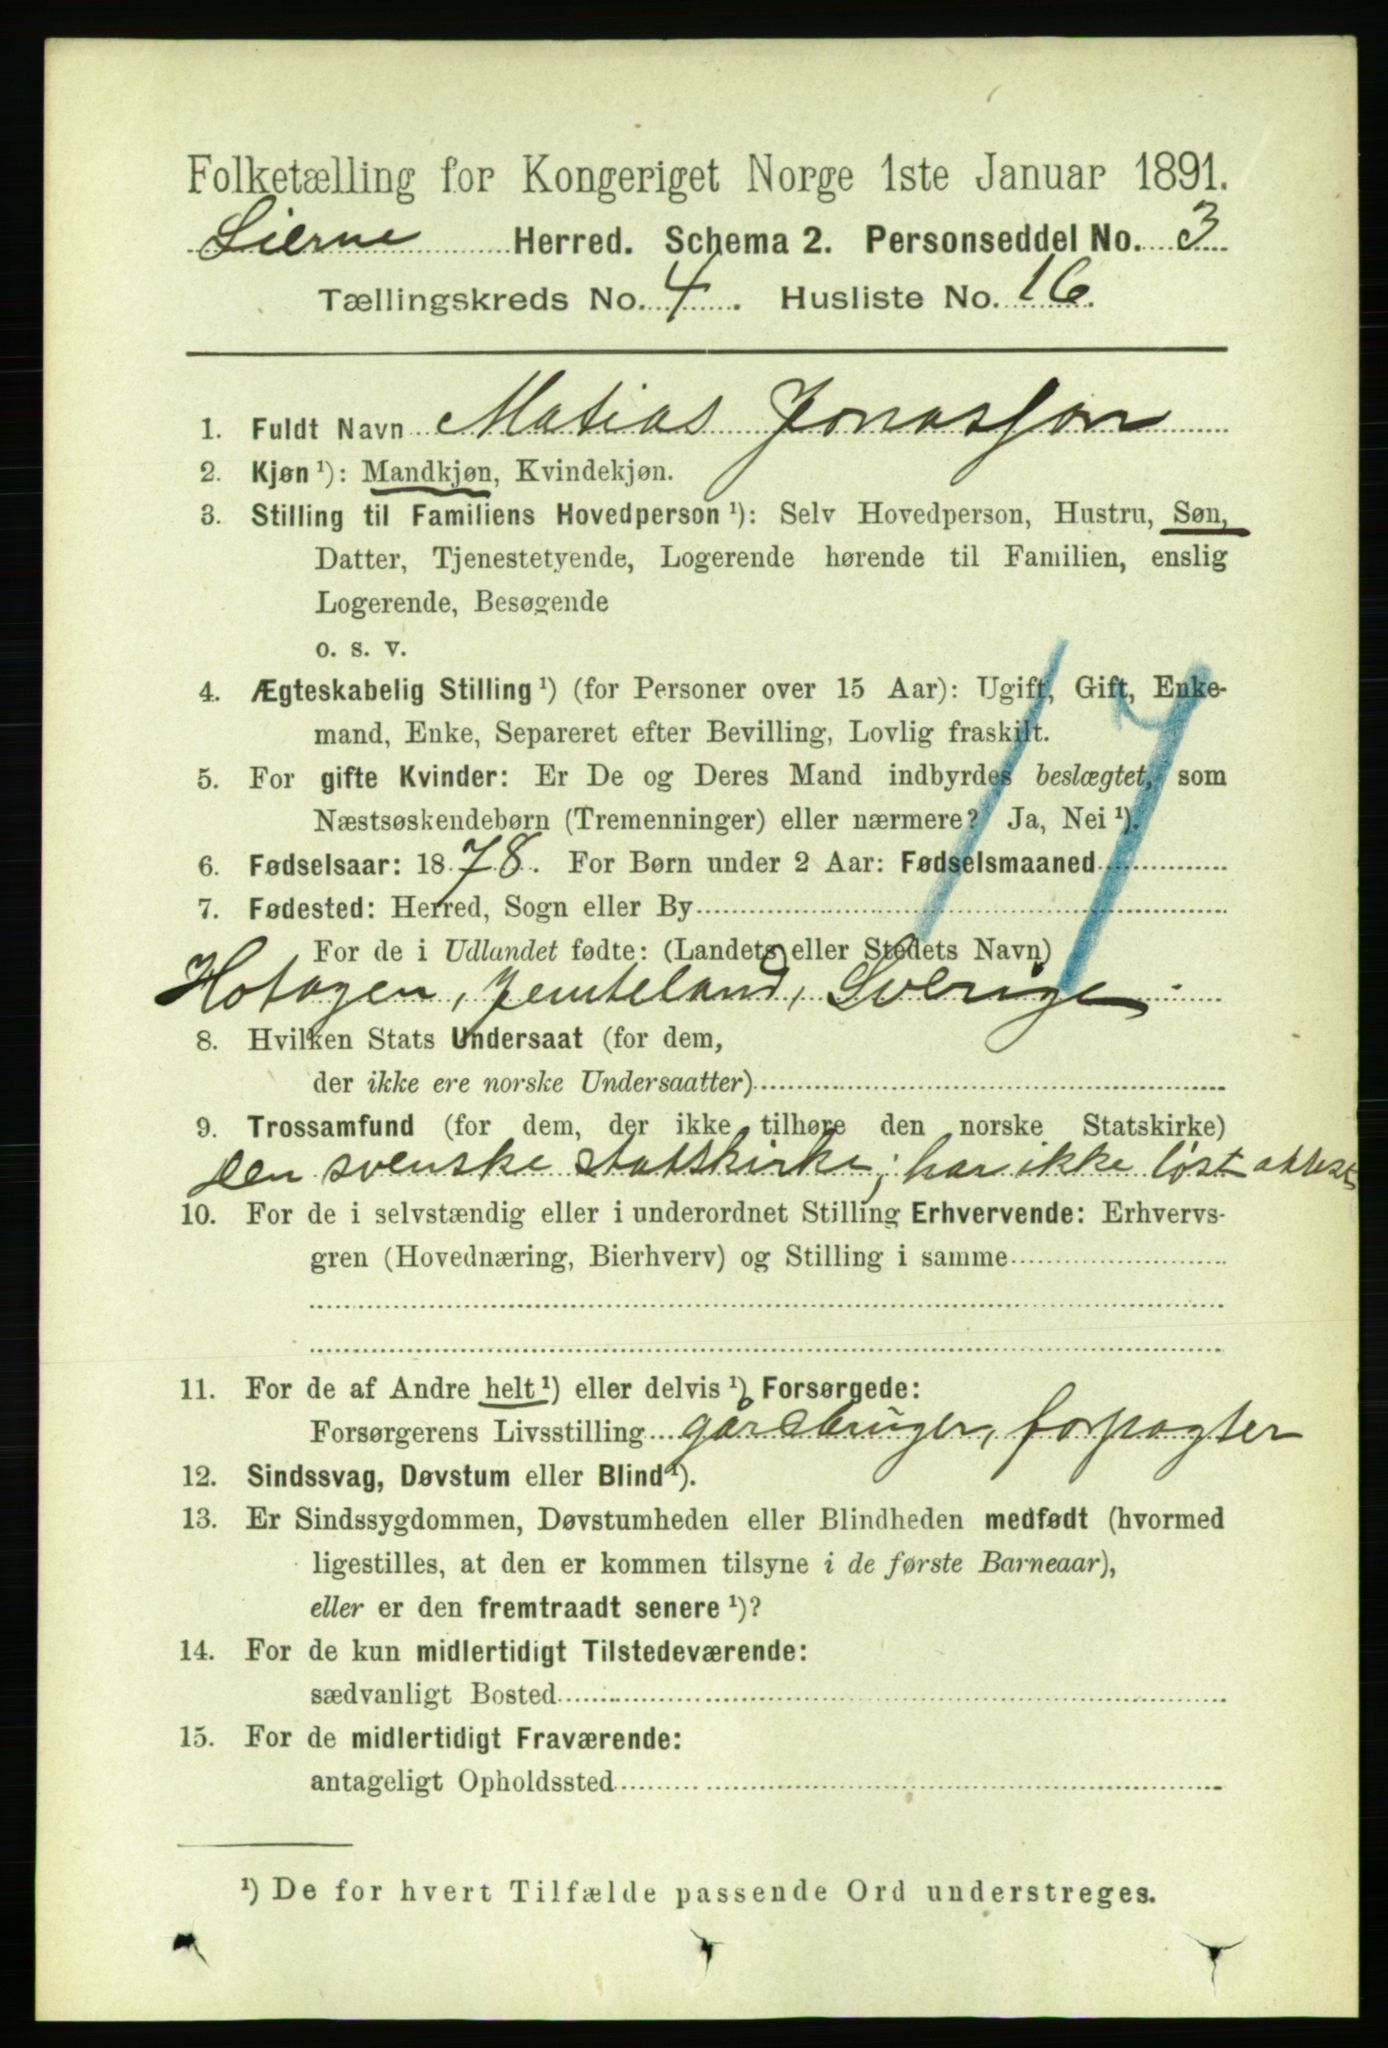 Folketælling for Kongeriget Norge 1ste Januar 1891.
Lierne Herred. Schema 2. Personseddel No. 3
Tællingskreds No. 4. Husliste No. 16.
1. Fuldt Navn Matias Jonasson
2. Kjøn ¹): Mandkjøn, Kvindekjøn.
3. Stilling til Familiens Hovedperson ¹): Selv Hovedperson, Hustru, Søn,
Datter, Tjenestetyende, Logerende hørende til Familien, enslig
Logerende, Besøgende
o. s. v.
4. Ægteskabelig Stilling ¹) (for Personer over 15 Aar): Ugift, Gift, Enke-
mand, Enke, Separeret efter Bevilling, Lovlig fraskilt.
5. For gifte Kvinder: Er De og Deres Mand indbyrdes beslægtet, som
Næstsøskendebørn (Tremenninger) eller nærmere? Ja, Nei ¹).
6. Fødselsaar: 1878. For Børn under 2 Aar: Fødselsmaaned
7. Fødested: Herred, Sogn eller By
For de i Udlandet fødte: (Landets eller Stedets Navn)
Hotagen, Jemteland, Sverige
8. Hvilken Stats Undersaat (for dem,
der ikke ere norske Undersaatter)
9. Trossamfund (for dem, der ikke tilhøre den norske Statskirke)
den svenske statskirke; har ikke løst attest
10. For de i selvstændig eller i underordnet Stilling Erhvervende: Erhvervs-
gren (Hovednæring, Bierhverv) og Stilling i samme
11. For de af Andre helt ¹) eller delvis ¹) Forsørgede:
Forsørgerens Livsstilling gårdbruger, forpagter
12. Sindssvag, Døvstum eller Blind ¹).
13. Er Sindssygdommen, Døvstumheden eller Blindheden medfødt (hvormed
ligestilles, at den er kommen tilsyne i de første Barneaar),
eller er den fremtraadt senere ¹)?
14. For de kun midlertidigt Tilstedeværende:
sædvanligt Bosted
15. For de midlertidigt Fraværende:
antageligt Opholdssted
¹) De for hvert Tilfælde passende Ord understreges.
17